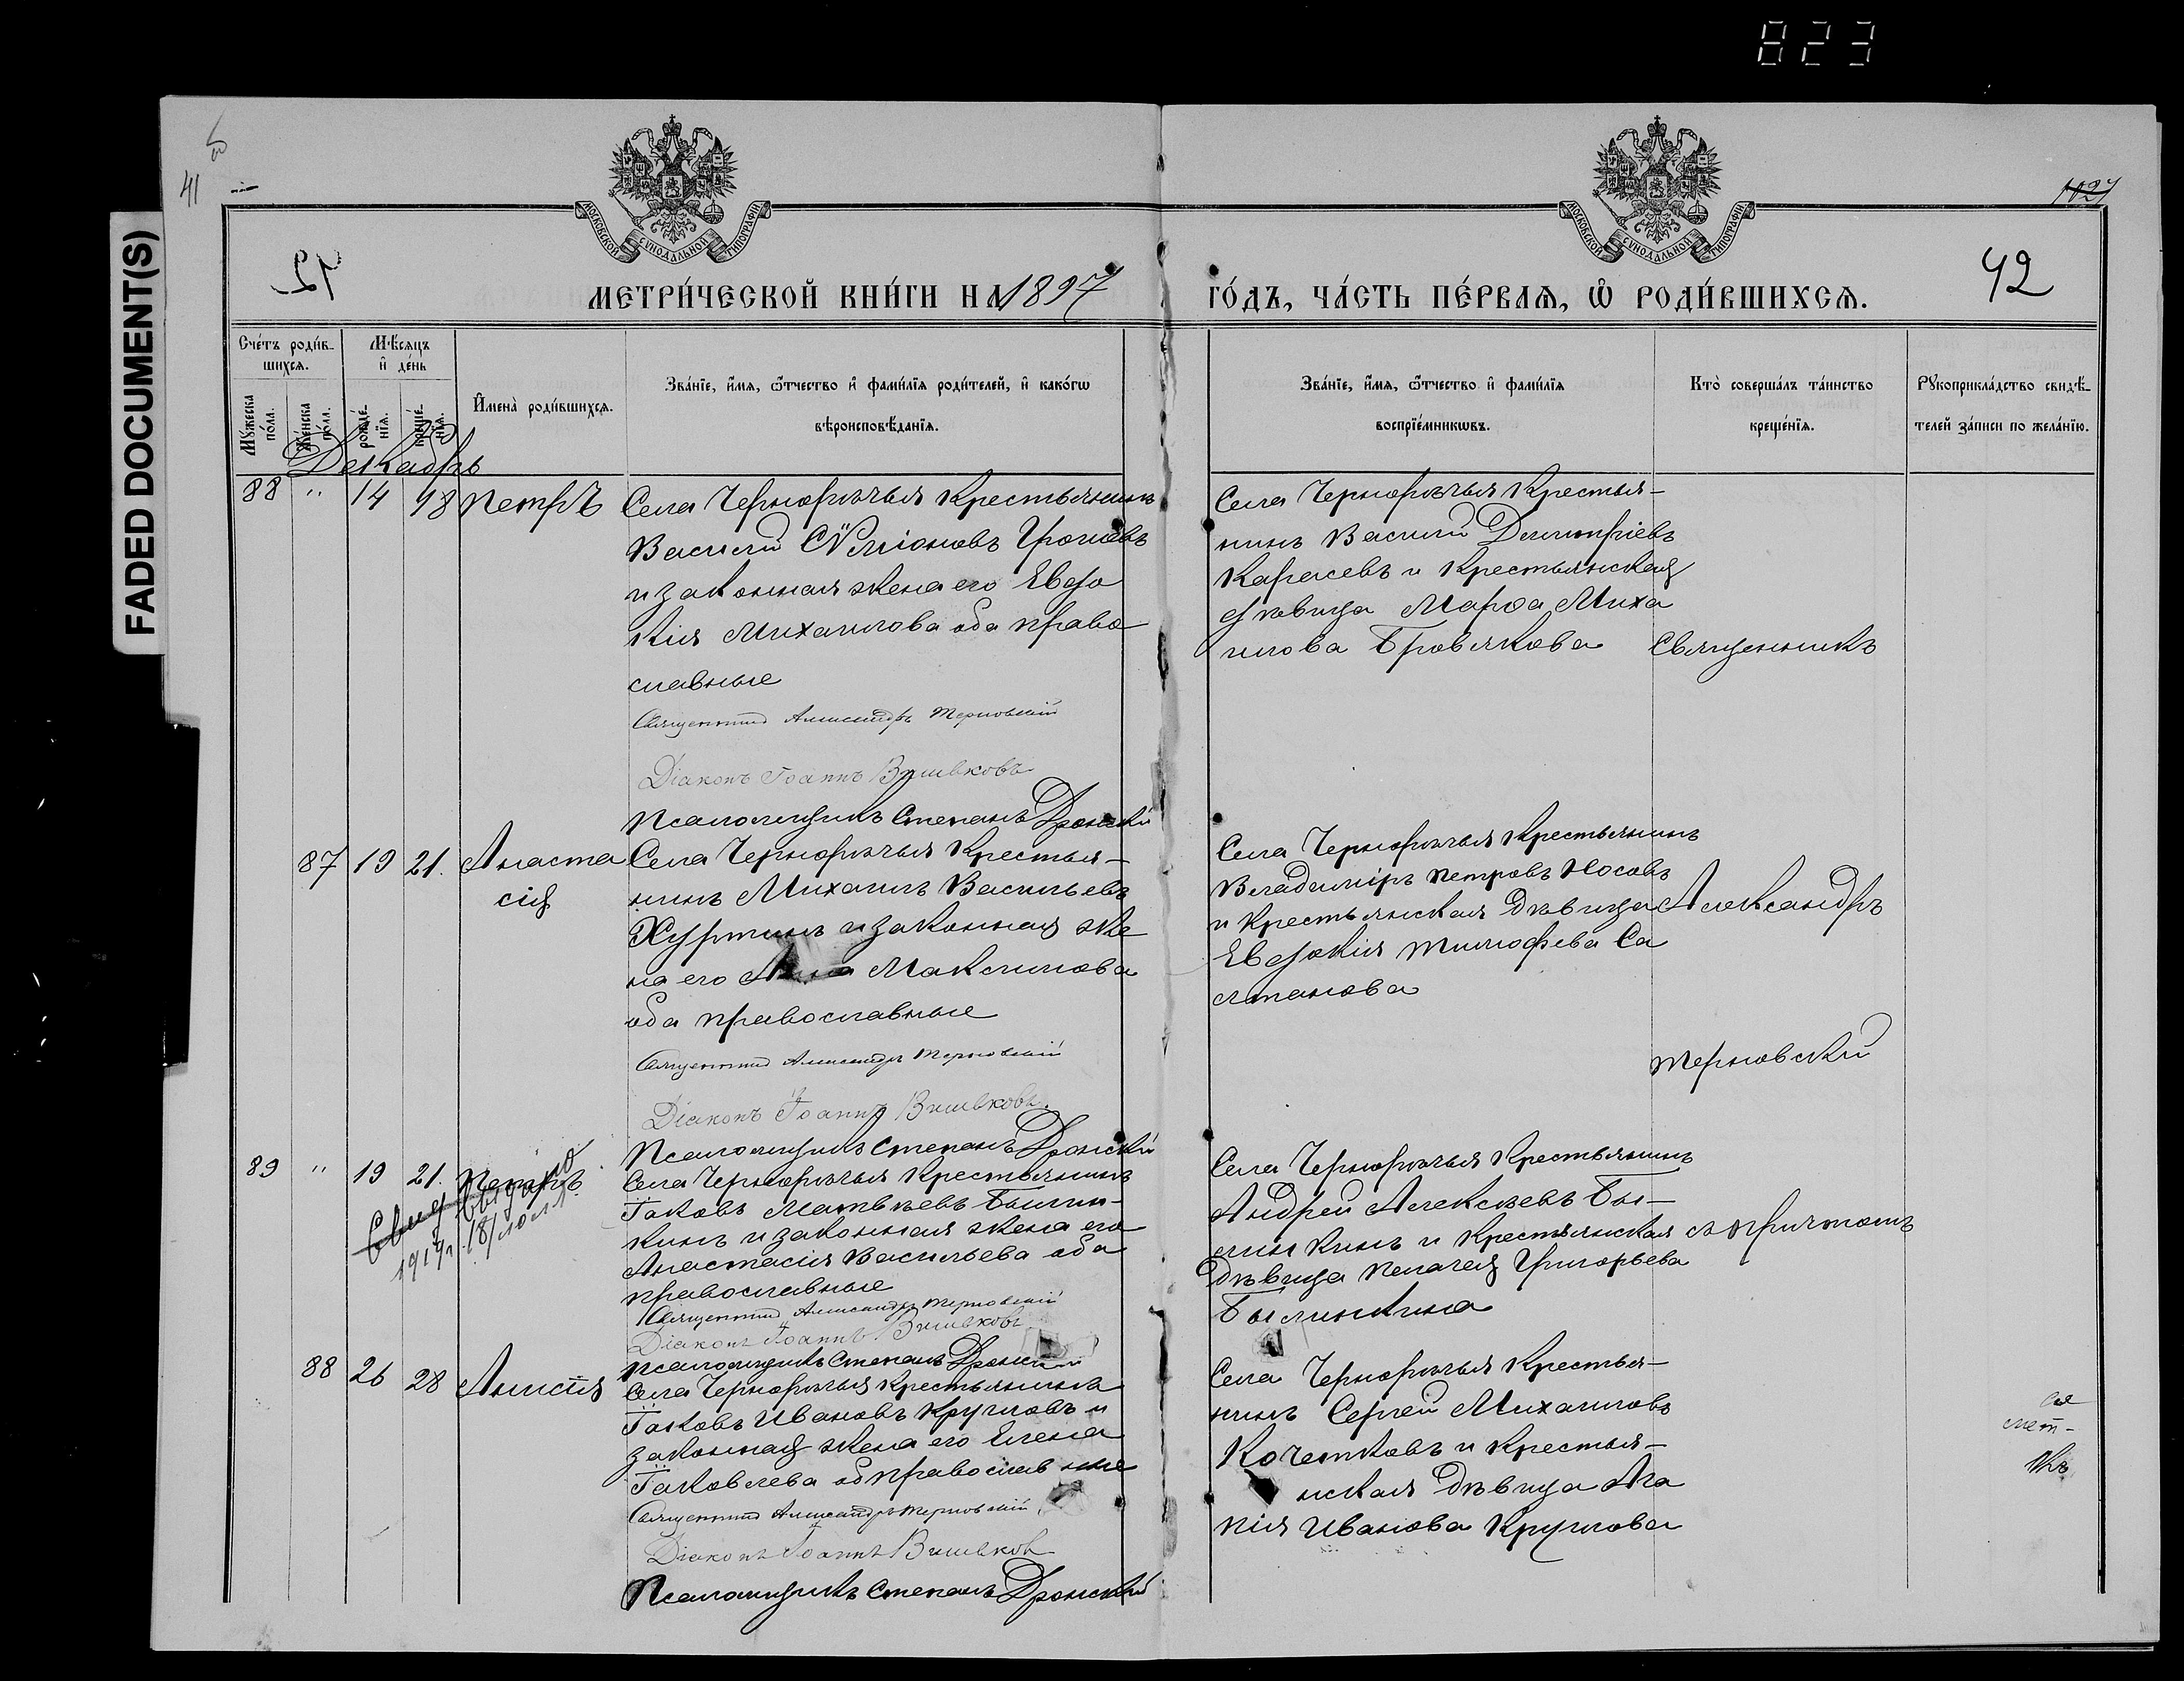 823
FADED DOCUMENT(S)
41
1027
42
МОСКОВСКОЙ СѴНОДАЛЬНОЙ ТИПОГРАФІИ
МОСКОВСКОЙ СѴНОДАЛЬНОЙ ТИПОГРАФІИ
МЕТРИ́ЧЕСКОЙ КНИ́ГИ НА 1897
ГО́ДЪ, ЧА́СТЬ ПЕ́РВАѦ, Ѡ҆ РОДИ́ВШИХСѦ.
Сче́тъ роди́в-
шихсѧ.
Мѣ́сѧцъ
и҆ де́нь
Мꙋ́жеска по́ла.
Же́нска по́ла.
рожде́-
нїѧ.
креще́-
нїѧ.
И҆мена̀ роди́вшихсѧ.
Зва́нїе, и҆́мѧ, ѻ҆́тчество и҆ фами́лїѧ роди́телей, и҆ како́гѡ
вѣроисповѣ́данїѧ.
Зва́нїе, и҆́мѧ, ѻ҆́тчество и҆ фами́лїѧ
воспрїе́мникѡвъ.
Кто̀ соверша́лъ та́инство
креще́нїѧ.
Рꙋкоприкла́дство свидѣ́-
телей за́писи по жела́нїю.
Декабрь
88 " 14 18 Петръ
Села Чернорѣчья Крестьянинъ
Василій Сѵмеоновъ
и законная жена его Евдо
кія Михаилова оба право
славные
Священникъ Александръ Терновскій
Діаконъ Іоаннъ
Псаломщикъ Степанъ Дронскій
Села Чернорѣчья Крестья-
нинъ Василій Димитріевъ
Карасевъ и Крестьянская
дѣвица Марѳа Миха
илова Бровякова
Священникъ
87 19 21. Анаста
сія
Села Чернорѣчья Крестья-
нинъ Михаилъ Васильевъ
Хуртинъ и законная же
на его Анна Максимова
оба православные
Священникъ Александръ Терновскій
Діаконъ Іоаннъ
Псаломщикъ Степанъ Дронскій
Села Чернорѣчья Крестьянинъ
Владиміръ Петровъ Носовъ
и Крестьянская дѣвица
Евдокія Тимофѣева Са
лтанова
Александръ
Терновскій
89 " 19 21. Петръ
Свид. выдано
1919 г. 18/
Села Чернорѣчья Крестьянинъ
Іаковъ Матвѣевъ Былин-
кинъ и законная жена его
Анастасія Васильева оба
православные
Священникъ Александръ Терновскій
Діаконъ Іоаннъ
Псаломщикъ Степанъ Дронскій
Села Чернорѣчья Крестьянинъ
Андрей Алексѣевъ Бы-
линкинъ и Крестьянская
дѣвица Пелагея Григорьева
Былинкина
съ причтомъ
88 26 28 Анисія
Села Чернорѣчья Крестьянинъ
Іаковъ Ивановъ Кругловъ и
законная жена его Елена
Іаковлева об православные
Священникъ Александръ Терновскій
Діаконъ Іоаннъ
Псаломщикъ Степанъ Дронскій
Села Чернорѣчья Крестья-
нинъ Сергей Михаиловъ
Кочетковъ и Крестья-
нская дѣвица Ага
пія Иванова Круглова